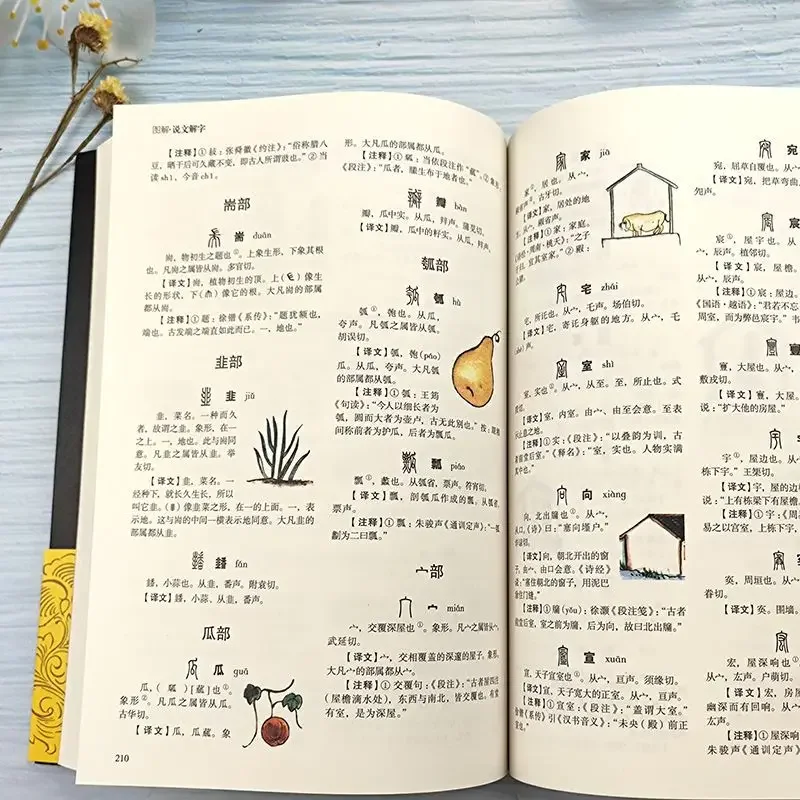 图解·说文解字
【注释】①敊：张舜徽《约注》：“俗称腊八
豆，晒于后可久藏不变，即古人所谓豉也。”②当
读shì，今音chǐ。
耑部
耑 duān
耑，物初生之题也①。上象生形，下象其根
也。凡耑之属皆从耑。多官切。
【译文】耑，植物初生的顶。上( )像生
长的形状，下( )像它的根。大凡耑的部属
都从耑。
【注释】①题：徐锴《系传》：“题犹额也，
端也。古发端之端直如此而已。一，地也。”
韭部
韭 jiǔ
韭，菜名。一种而久
者，故谓之韭。象形，在一
之上。一，地也。此与耑同
意。凡韭之属皆从韭。举
友切。
【译文】韭，菜名。一
经种下，就长久生长，所以
叫它韭。( )像韭菜之形，在一的上面。一，表
示地。这与耑的中间一横表示地同意。大凡韭的
部属都从韭。
fán
小蒜也。从韭，番声。附袁切。
【译文】小蒜。从韭，番声。
瓜部
瓜 guā
瓜，( )[蓏]也①。
象形②。凡瓜之属皆从瓜。
古华切。
【译文】瓜，瓜蓏。象
210
形。大凡瓜的部属都从瓜。
【注释】①当依段注作“蓏”。②象形，
《段注》：“瓜者，縢生布于地者也。”
瓣 bàn
瓣，瓜中实。从瓜，辡声。蒲苋切。
【译文】瓣，瓜中的籽实。从瓜，辡声。
瓠部
瓠 hù
瓠①，匏也。从瓜，
夸声。凡瓠之属皆从瓠。
胡误切。
【译文】瓠，匏(páo)
瓜。从瓜，夸声。大凡瓠
的部属都从瓠。
【注释】①瓠：王筠
《句读》：“今人以细长者为
瓠，圆而大者为壶卢，古无此别也。”按：跟
间称前者为护瓜，后者为瓢瓜。
瓢 piáo
瓢①，蠡也。从瓠省，票声。符宵切。
【译文】瓢，剖瓠瓜作成的瓢。从瓠省，
票声。
【注释】①瓢：朱骏声《通训定声》：“一瓠
劙为二曰瓢。”
宀部
宀 mián
宀，交覆深屋也①。象形。凡宀之属皆从宀。
武延切。
【译文】宀，交相覆盖的深邃的屋子。象形。
大凡宀的部属都从宀。
【注释】①交覆句：《段注》：“古者屋四注
(屋檐滴水处)，东西与南北，皆交覆也。有堂
有室，是为深屋。”
家 jiā
家①，居也。从宀，
豭省声②。古牙切。
【译文】家，居处的地
方。从宀，豭省声。
【注释】①家：家庭。
《诗经·周南·桃夭》：“之子
于归，宜其室家。”②豭：
宅 zhái
宅，所托也。从宀，乇声。场伯切。
【译文】宅，寄托身躯的地方。从宀，乇
(zhé)声。
室 shì
室，实也①。从宀，从至。至，所止也。式
质切。
【译文】室，内室。由宀、由至会意。至表
示止息之地。
【注释】①实：《段注》：“以叠韵为训，古
者前堂后室。”《释名》：“室，实也。人物实满
其中也。”
向 xiàng
向，北出牖也①。从宀，
从口。《诗》曰：“塞向墐户。”
许谅切。
【译文】向，朝北开出的窗
子。由宀、由口会意。《诗经》
说：“塞住朝北的窗子，用泥巴
涂住门缝。”
【注释】①牖(yǒu)：徐灏《段注笺》：“古者
前堂后室，室之前为牖，后为向，故曰北出牖。”
宣 xuān
宣，天子宣室也①。从宀，亘声。须缘切。
【译文】宣，天子宽大的正室。从宀，亘声。
【注释】①宣室：《段注》：“盖谓大室。”
徐锴《系传》引《汉书音义》：“未央(殿)前正
室也。”
宛
宛，屈草自覆也。
【译文】宛，把草弯曲
夗声。
宸
宸①，屋宇也。从
宀，辰声。植邻切。
【译文】宸，屋檐。
从宀，辰声。
【注释】①宸：屋边。
《国语·越语》：“君若不忘
周室，而为弊邑宸宇。”韦
寷，大屋也。从宀，
敷戎切。
【译文】寷，大屋。
说：“扩大他的房屋。”
宇
宇①，屋边也。从宀，
栋下宇。”王榘切。
【译文】宇，屋的边
说：“上有栋梁下有屋檐。”
【注释】①宇：《周易
易之以宫室，上栋下宇，
奂，周垣也。从宀，
眷切。
【译文】奂，围墙。
宏
宏，屋深响也①。
宀，厷声。户萌切。
【译文】宏，房屋
幽深而有回响。从宀，
厷声。
【注释】①屋深响
朱骏声《通训定声》